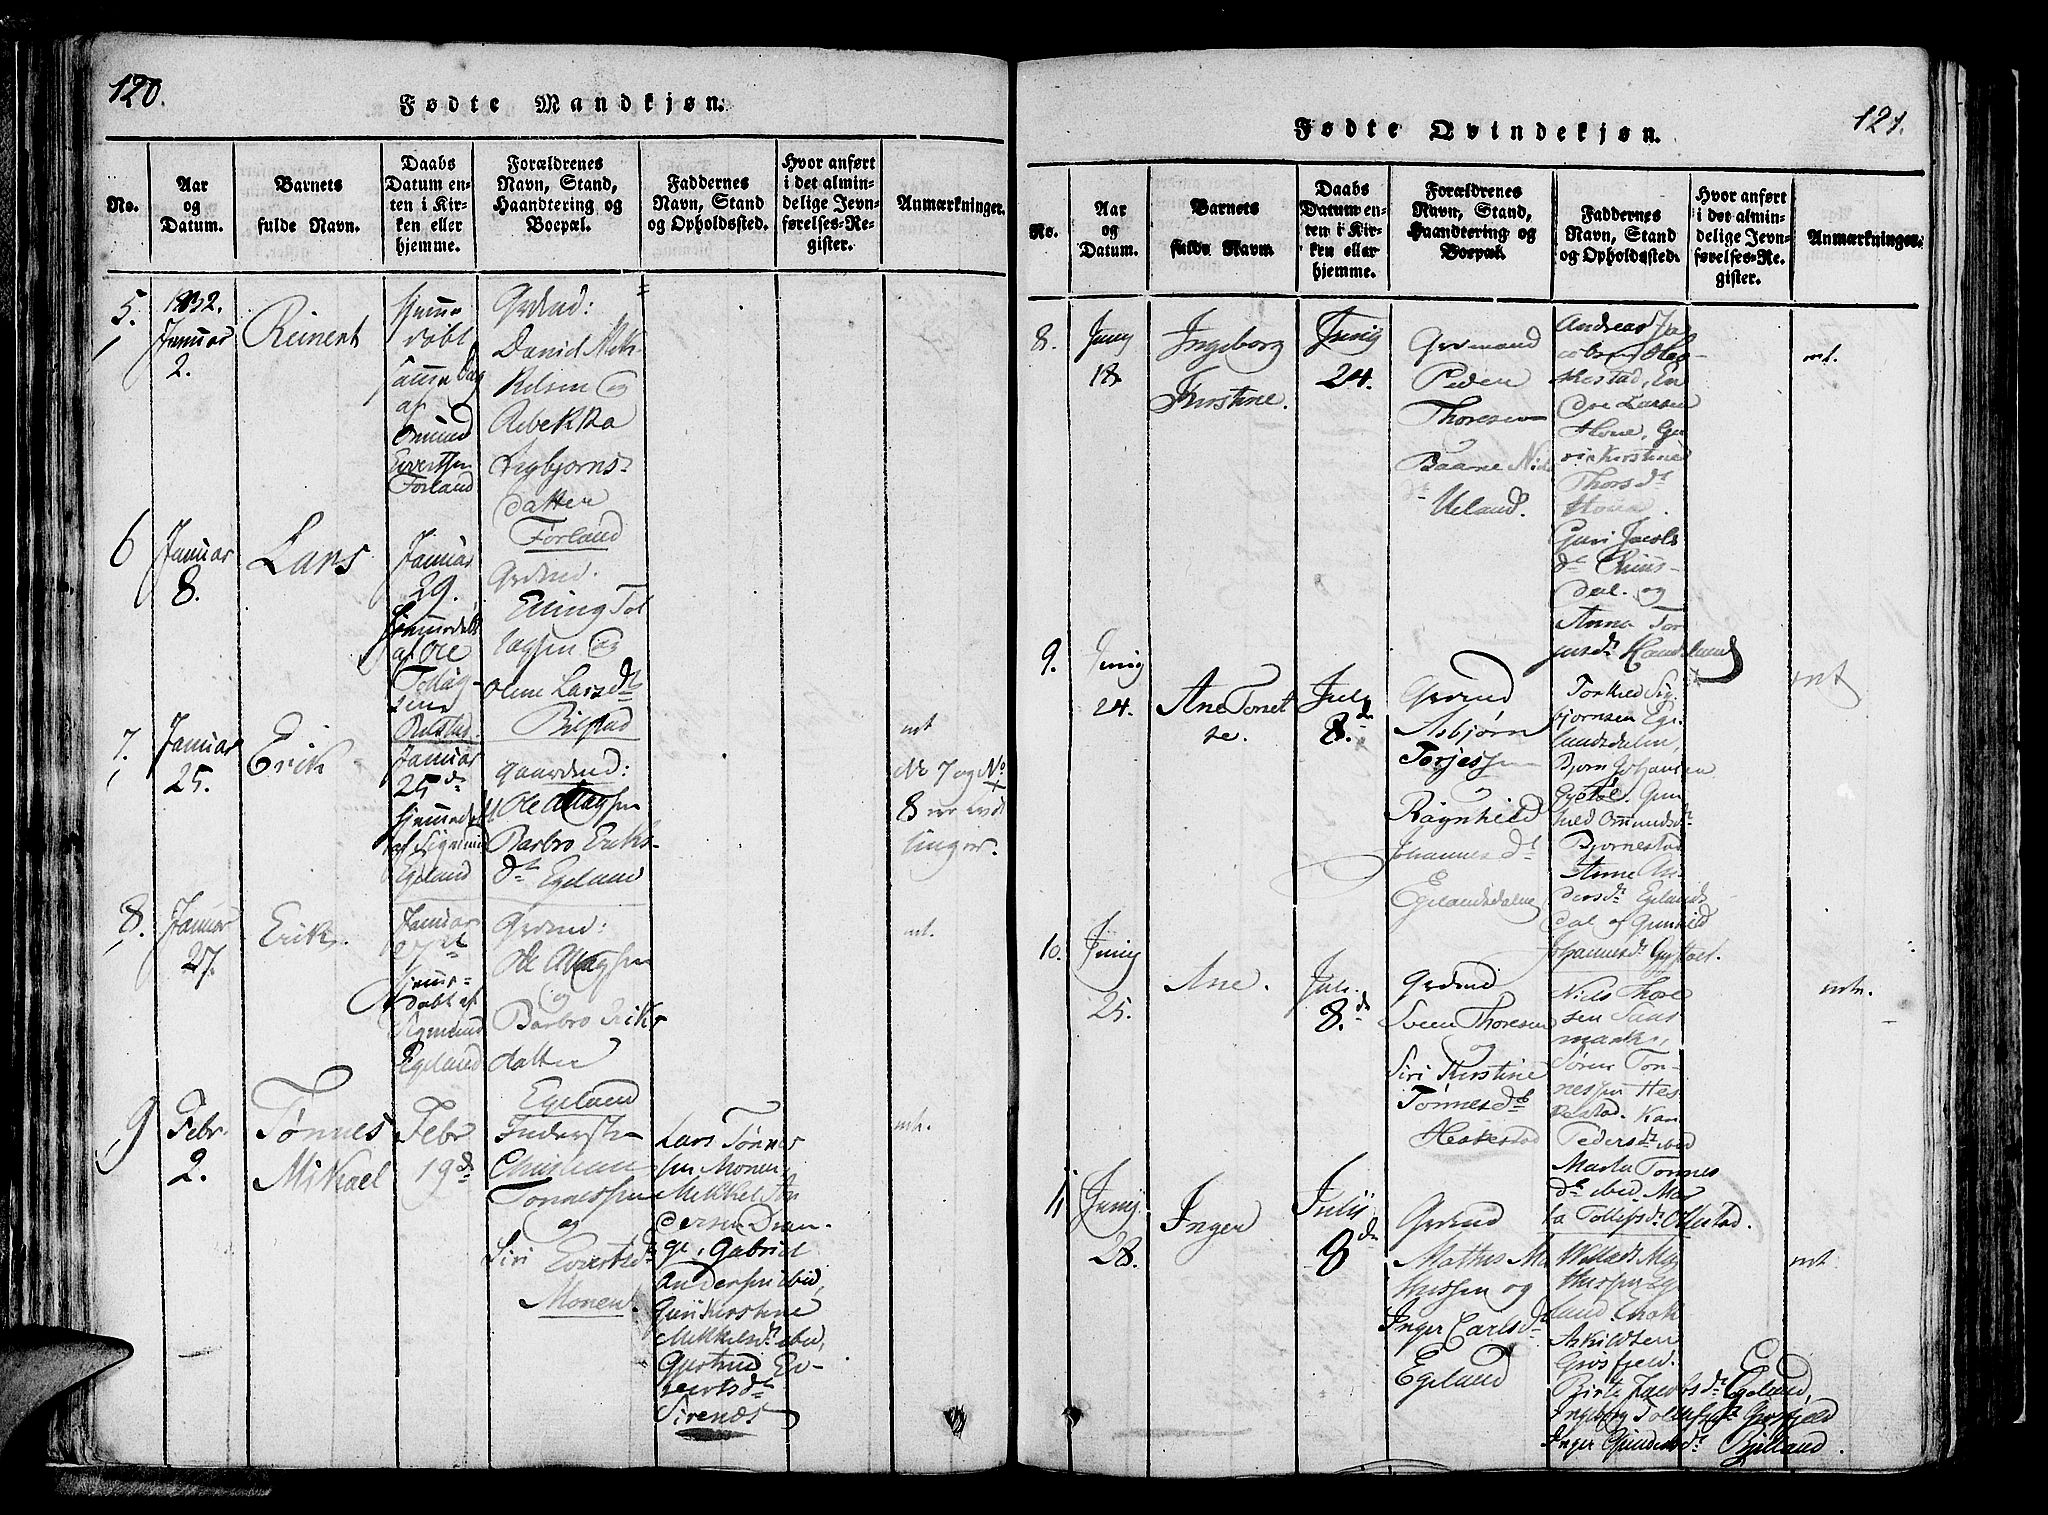 120.
Fødte Mandkjøn.
No.
Aar
og
Datum.
Barnets
fulde Navn.
Daabs
Datum en-
ten i Kir-
ken eller
hjemme.
Forældrenes
Navn, Stand,
Haandtering og
Boepæl.
Faddernes
Navn, Stand
og Opholdssted.
Hvor anført
i det almin-
delige Jevn-
førelses-Re-
gister.
Anmærkninger.
5.
1832.
Januar
2.
Reinert
hjemme
døbt
samme Dag
af
Omund
Evertsen
Forland
Grdmd:
David Mik-
kelsen og
Rebekka
datter
Forland
6
Januar
8.
Lars
Januar
29.
af Ole
Grdmd.
Elling Tol
lagsen og
Olene Larsdt
Bilstad
7.
Januar
25.
Erik
Januar
25d.
hjemmedøbt
af Sigmund
Egeland
Gaardmd:
Ole Allagsen
Barbro Eriks-
dt Egeland
nt
No 7 og No
8 er tvil
linger.
8.
Januar
27.
Erik.
Januar
27de
hjemme-
døbt af
Sigmund
Egeland
Grdmd:
Ole Allagsen
og
Barbro Eriks
datter
Egeland
nt.
9
Febr.
2.
Tønnes
Mikael
Febr
19de
Inderste
Christian
Tønnessen
og
Siri Evertsdt
Monen.
Lars Tønnes
sen Monen,
Mikkel An
dersen Dran-
ge, Gabriel
Andersen ibid,
Guri Kirstine
Mikkelsdt ibid,
Gjertrud Ev-
ertsdt
Sirenæs
nt.
121.
Fødte Qvindekjøn.
No.
Aar
og
Datum.
Barnets
fulde Navn.
Daabs
Datum en-
ten i Kir-
ken eller
hjemme.
Forældrenes
Navn, Stand,
Haandtering og
Boepæl.
Faddernes
Navn, Stand
og Opholdssted.
Hvor anført
i det almin-
delige Jevn-
førelses-Re-
gister.
Anmærkninger.
8.
Junij
18.
Ingeborg
Kirstine.
Junij
24.
Grdmand
Peder
Thoresen
Ueland.
Andreas Ja
cobsen Hes-
kestad, En
dre Larsen
Hove, Gu
ri Kirstine
Thorsdt
Hove.
Guri Jacobs
dt
dal. og
Anna Tor
nt.
9.
Junij
24.
Ane Tonet
te.
July
8de
Grdmd
Asbjørn
Torjessen
Ragnhild
Johannesdt
Egelandsdalen
Torkild Sig
bjørnsen Ege
landsdalen,
Bjørn Johansen
Gystøl. Gun
hild Omundsdt
Bjørnestad
Anne An
dersdt Egelands
dal af Gunhild
Johannesdt Gystøl.
nt
10.
Junij
25.
Ane.
Juli
8de
Grdmd
Sven Thoresen
og
Siri Kirstine
Tønnesdt
Heskestad
Niels Thore
sen
Sören Tøn-
nessen Hes
kestad. Kari
Pedersdt ibid
Marta Tønnes
dt ibid. Mar
ta Tollefsdt Ollestad.
nt.
11
Junij
28.
Inger
Julij
8de
Grdmd
Mathias Ma
thissen og
Inger Carlsdt
Egeland
thissen Ege
land.
Askildsen
Grøsfjeld.
Birte Jacobsdt Egeland,
Ingeborg Tollefsdt Grøsfjeld
Inger Bjelland.
nt.